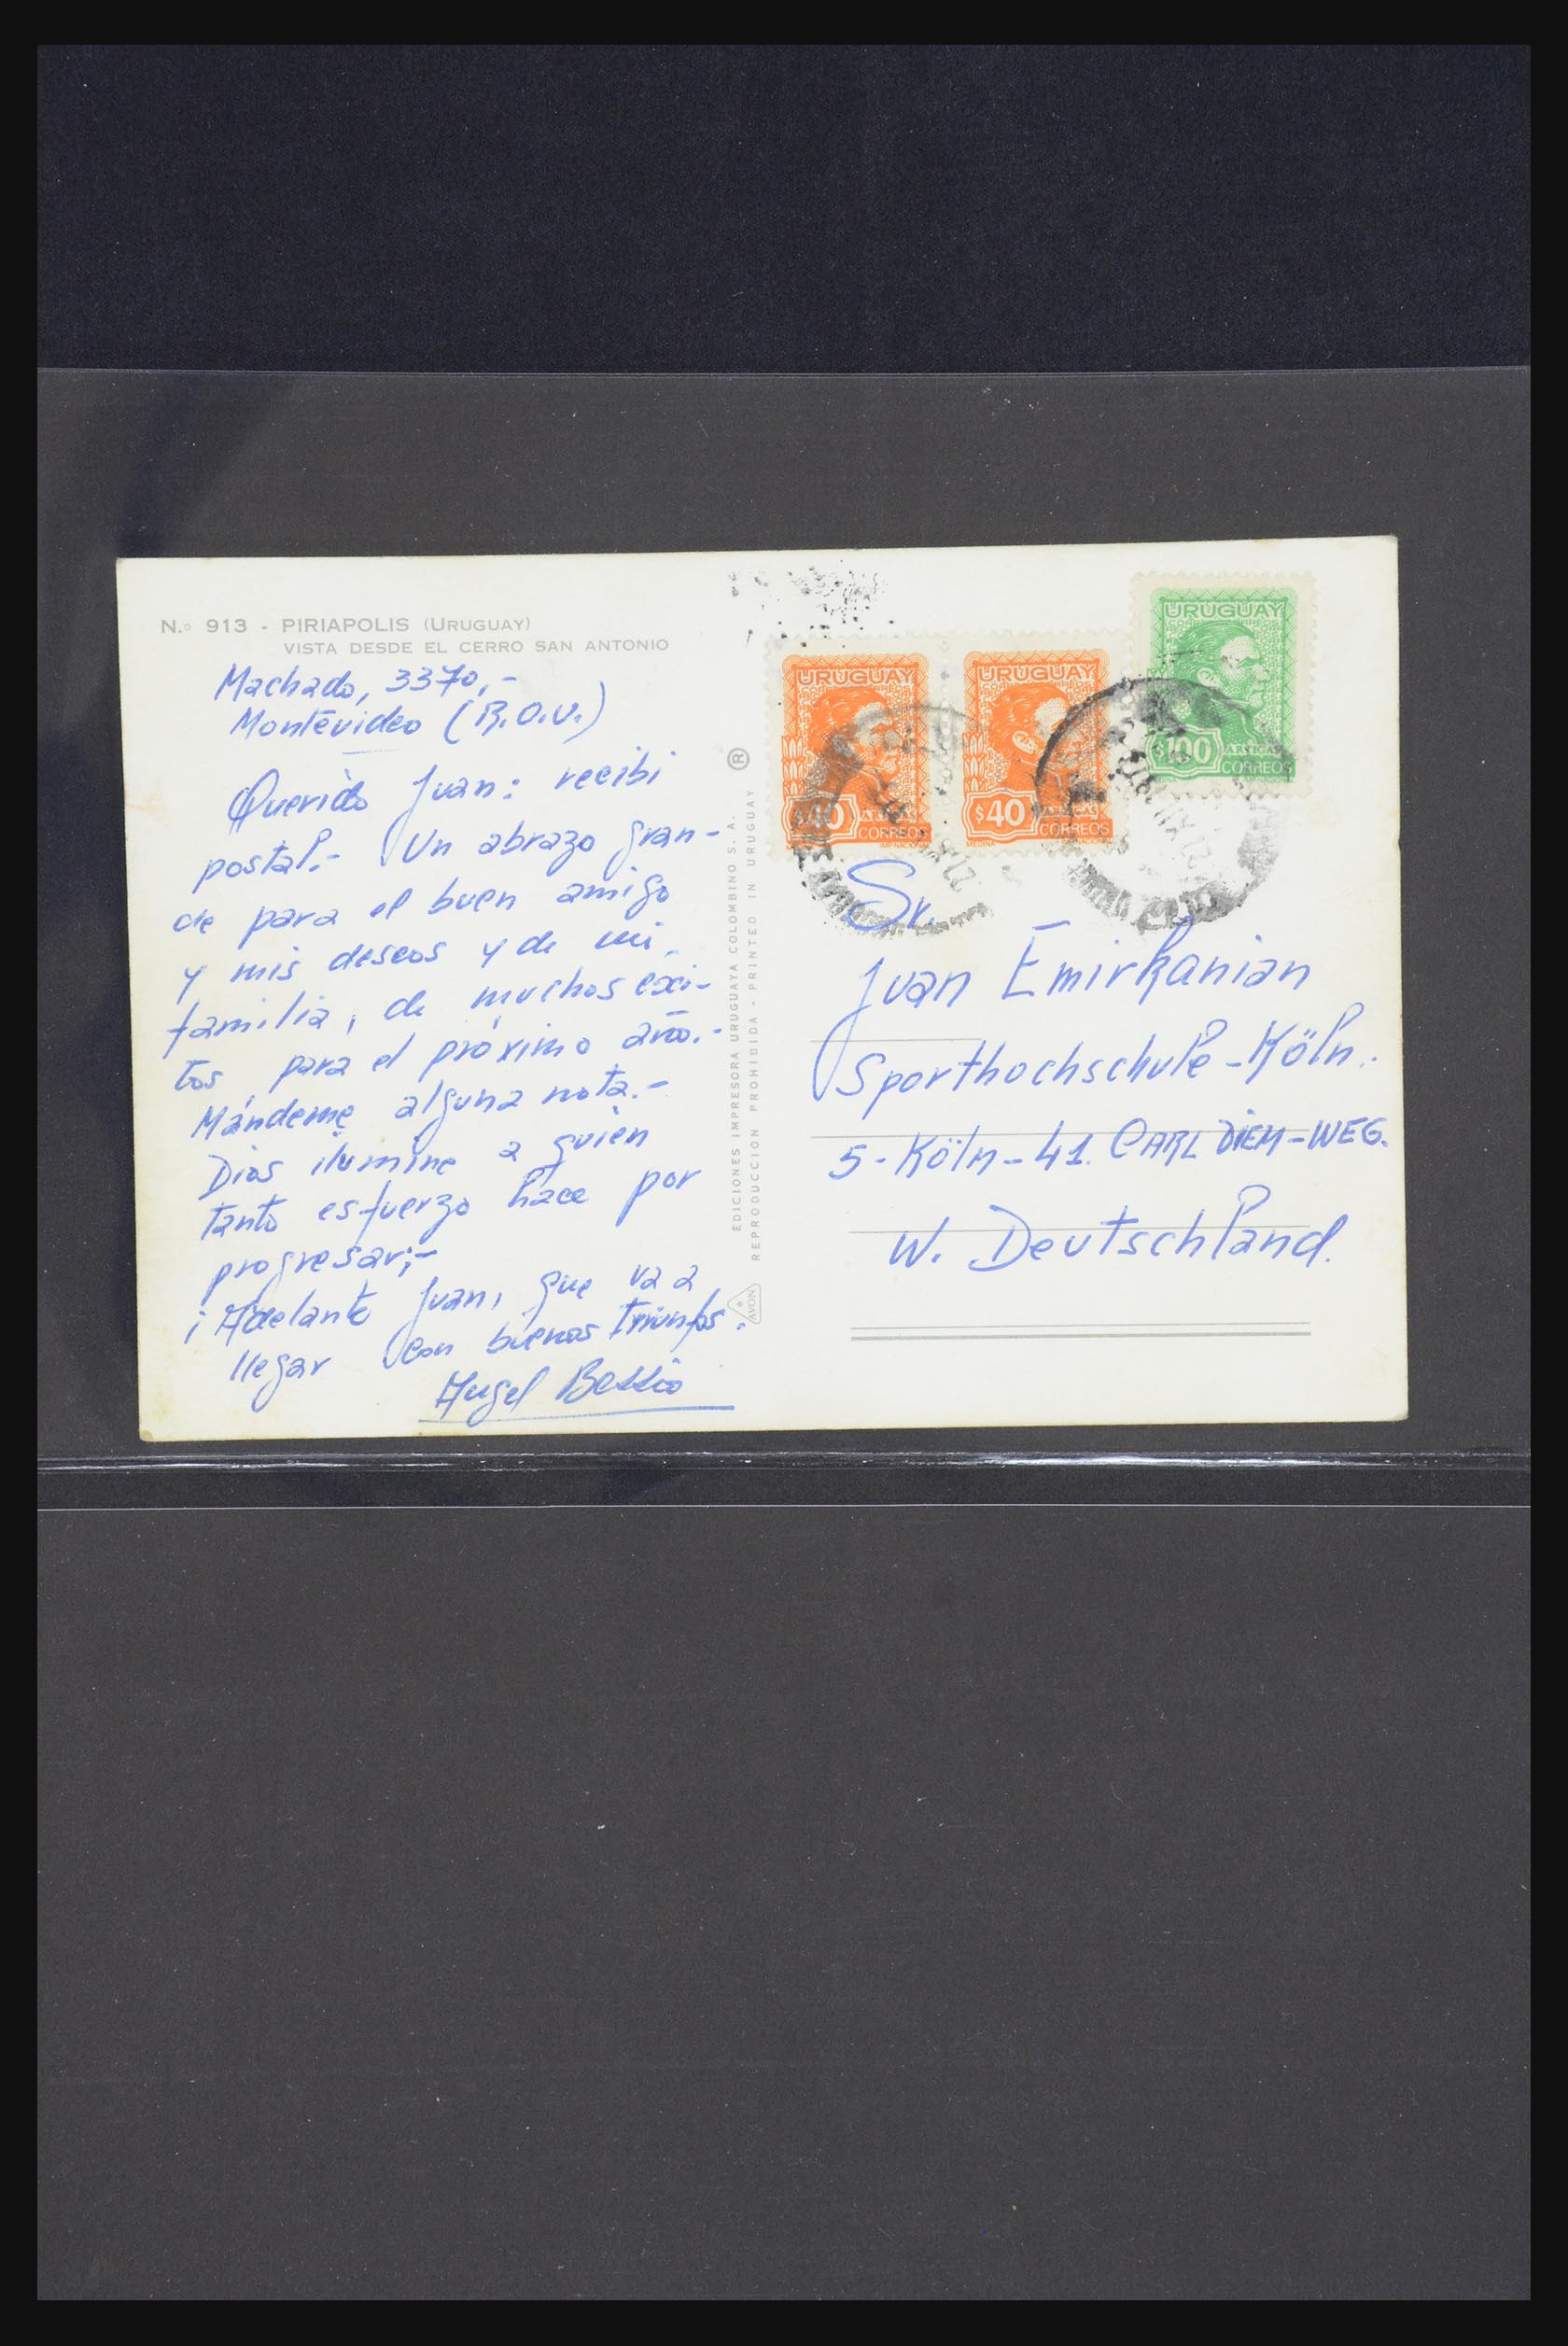 N.o 913 - PIRIAPOLIS (URUGUAY)
VISTA DESDE EL CERRO SAN ANTONIO
Machado, 3370,-
Montevideo (R.O.U.)
Querido Juan: recibi
postal.- Un abrazo gran-
de para el buen amigo
y mis deseos y de mi
familia, de muchos éxi-
tos para el próximo año.-
Mándeme alguna nota.-
Dios ilumine a quien
tanto esfuerzo hace por
progresar;-
¡Adelante Juan, que va a
llegar con buenos triunfos.
Angel Bessio
EDICIONES IMPRESORA URUGUAYA COLOMBINO S. A.
REPRODUCCION PROHIBIDA - PRINTED IN URUGUAY
®
AVON
URUGUAY
$40
ARTIGAS
CORREOS
IMP NACIONAL
URUGUAY
$40
ARTIGAS
CORREOS
MEDINA
URUGUAY
$100
ARTIGAS
CORREOS
Sr.
Juan Emirkanian
Sporthochschule - Köln.
5 - Köln - 41. CARL DIEM - WEG.
W. Deutschland.